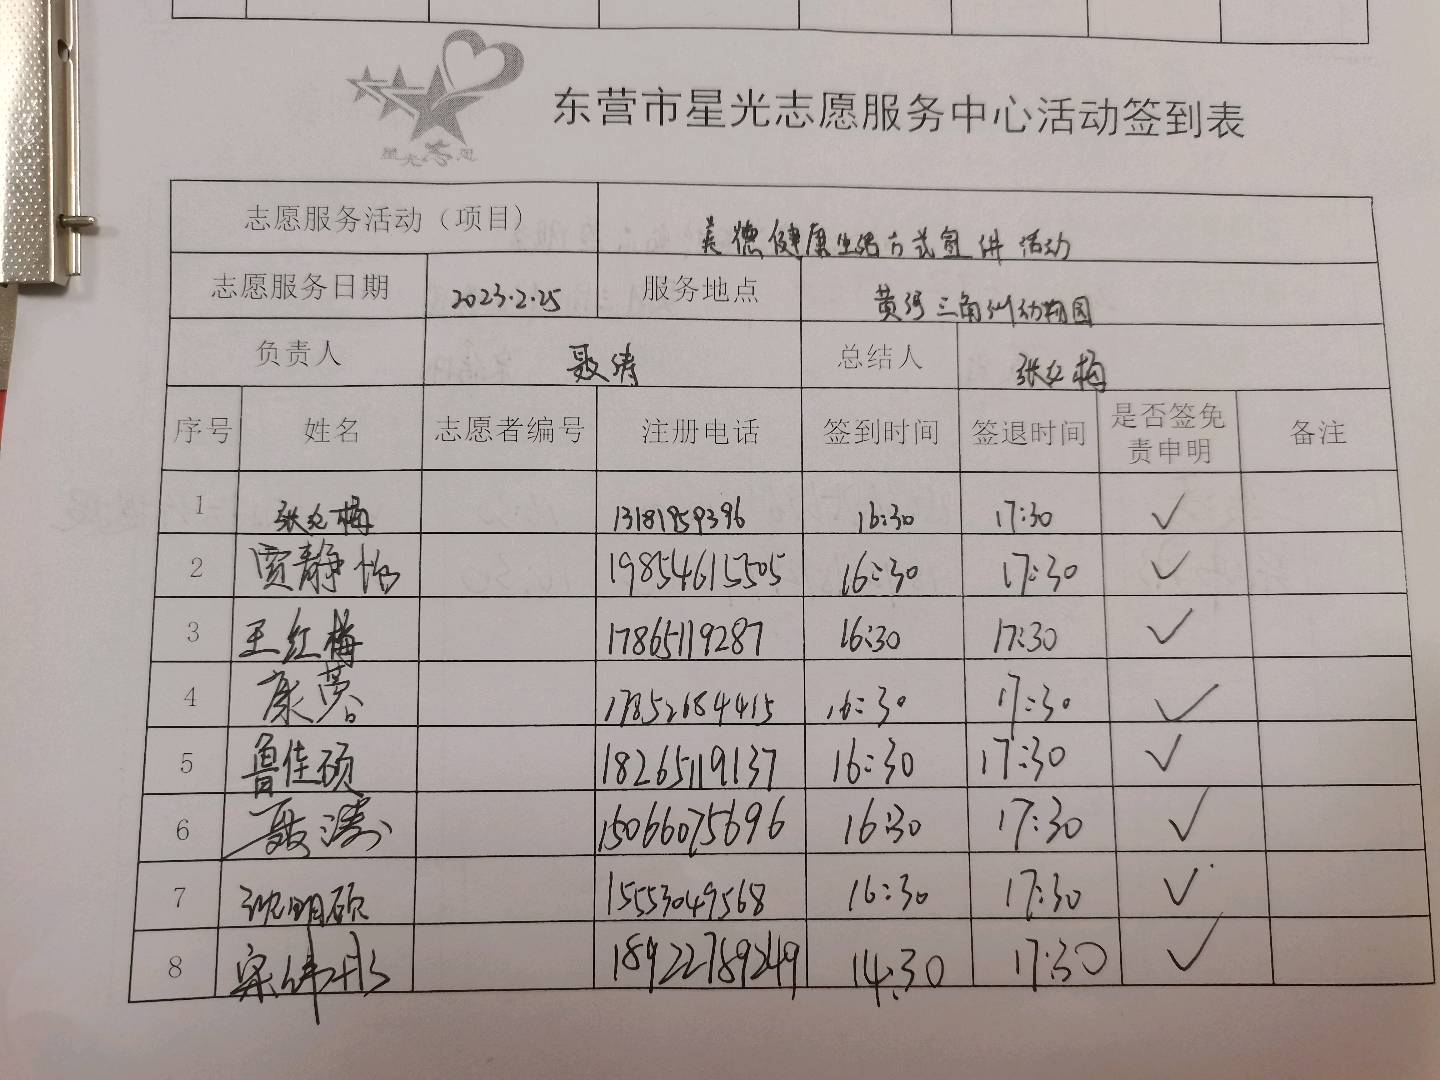 星光志愿
东营市星光志愿服务中心活动签到表
志愿服务活动（项目） 美德健康生活方式宣讲活动
志愿服务日期 2023.2.25 服务地点 黄河三角洲动物园
负责人 聂涛 总结人 张红梅
序号 姓名 志愿者编号 注册电话 签到时间 签退时间 是否签免责申明 备注
1 张红梅 13181959396 16:30 17:30 ✓
2 贾静怡 19854615505 16:30 17:30 ✓
3 王红梅 17865119287 16:30 17:30 ✓
4 康 17852684415 16:30 17:30 ✓
5 鲁佳硕 18265119137 16:30 17:30 ✓
6 聂涛 15066075696 16:30 17:30 ✓
7 沈明硕 15553049568 16:30 17:30 ✓
8 18922789249 14:30 17:30 ✓